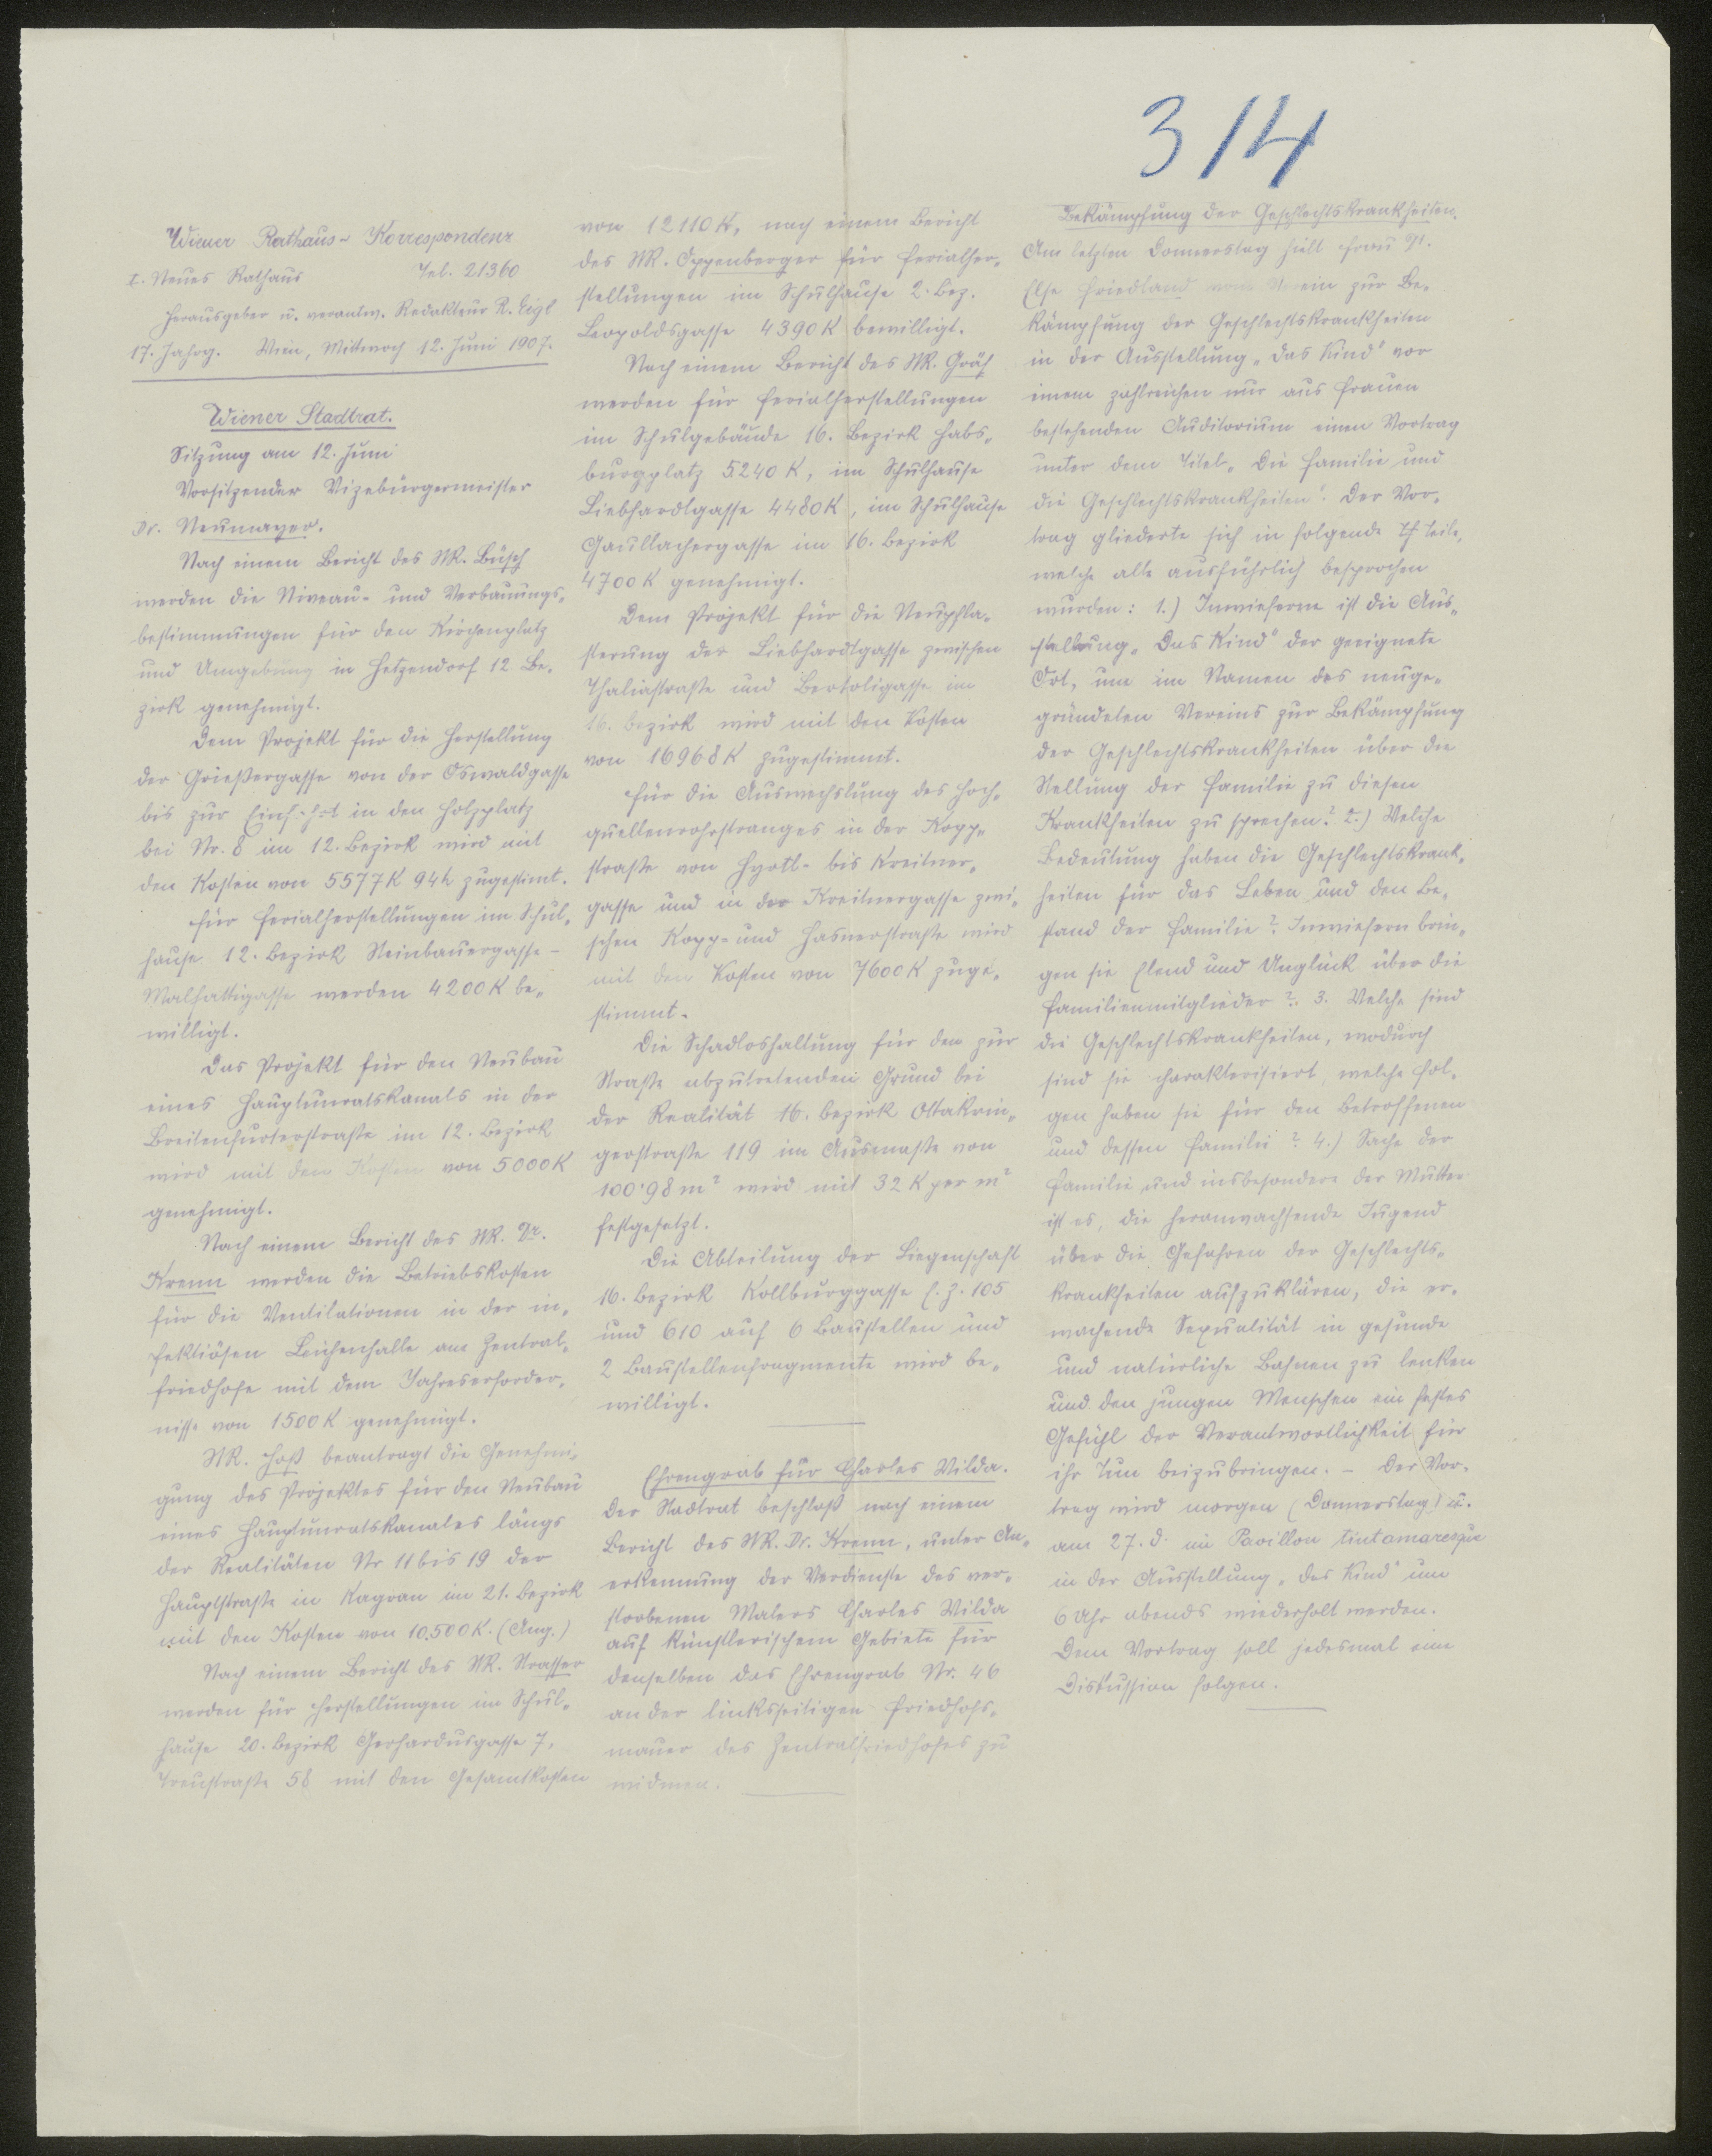 314
Wiener Rathaus-Korrespondenz
I. Neues Rathaus Tel. 21360
Herausgeber u. verantw. Redakteur R. Eigl
17. Jahrg. Wien, Mittwoch 12. Juni 1907.
Wiener Stadtrat.
Sitzung am 12. Juni
Vorsitzender Vizebürgermeister
Dr. Neumayer.
Nach einem Bericht des StR. Büsch
werden die Niveau- und Verbauungs-
bestimmungen für den Kirchenplatz
und Umgebung in Hetzendorf 12 Be-
zirk genehmigt.
Dem Projekt für die Herstellung
der Grießergasse von der Oswaldgasse
bis zur Einfahrt in den Holzplatz
bei Nr. 8 im 12. Bezirk wird mit
den Kosten von 5577K 94h zugestimt.
Für Ferialherstellungen im Schul-
hause 12. Bezirk Steinbauergasse-
Malfattigasse werden 4200K be-
willigt.
Das Projekt für den Neubau
eines Hauptunratskanals in der
Breitenfurterstraße im 12. Bezirk
wird mit den Kosten von 5000K
genehmigt.
Nach einem Bericht des StR. Dr.
Krenn werden die Betriebskosten
für die Ventilationen in der in-
fektiösen Leichenhalle am Zentral-
friedhofe mit dem Jahreserforder-
nisse von 1500K genehmigt.
StR. Hoß beantragt die Genehmi-
gung des Projektes für den Neubau
eines Hauptunratskanales längs
der Realitäten Nr 11 bis 19 der
Hauptstraße in Kagran im 21. Bezirk
mit den Kosten von 10.500K. (Ang.)
Nach einem Bericht des StR. Strasser
werden für Herstellungen im Schul-
hause 20. Bezirk Gerhardusgasse 7,
Treustraße 58 mit den Gesamtkosten
von 12110K, nach einem Bericht
des StR. Oppenberger für Ferialher-
stellungen im Schulhause 2. Bez.
Leopoldsgasse 4390K bewilligt.
Nach einem Bericht des StR. Gräf
werden für Ferialherstellungen
im Schulgebäude 16. Bezirk Habs-
burgplatz 5240K, im Schulhause
Liebhardtgasse 4480K, im Schulhause
Gaullachergasse im 16. Bezirk
4700K genehmigt.
Dem Projekt für die Neupfla-
sterung der Liebhardtgasse zwischen
Thaliastraße und Bertoligasse im
16. Bezirk wird mit den Kosten
von 16968K zugestimmt.
Für die Auswechslung des Hoch-
quellenrohrstranges in der Kopp-
straße von Hyrtl- bis Kreitner-
gasse und in der Kreitnergasse zwi-
schen Kopp- und Hasnerstraße wird
mit den Kosten von 7600K zuge-
stimmt.
Die Schadloshaltung für den zur
Straße abzutretenden Grund bei
der Realität 16. Bezirk Ottakrin-
gerstraße 119 im Ausmaße von
100'98 m² wird mit 32 K per m²
festgesetzt.
Die Abteilung der Liegenschaft
16. Bezirk Kollburggasse E.Z. 105
und 610 auf 6 Baustellen und
2 Baustellenfragmente wird be-
willigt.
Ehrengrab für Charles Wilda.
Der Stadtrat beschloß nach einem
Bericht des StR. Dr. Krenn, unter An-
erkennung der Verdienste des ver-
storbenen Malers Charles Wilda
auf künstlerischem Gebiete für
denselben das Ehrengrab Nr. 46
an der linksseitigen Friedhofs-
mauer des Zentralfriedhofes zu
widmen.
Bekämpfung der Geschlechtskrankheiten.
Am letzten Donnerstag hielt Frau Dr.
Else Friedland vom Verein zur Be-
kämpfung der Geschlechtskrankheiten
in der Ausstellung „Das Kind" vor
einem zahlreichen nur aus Frauen
bestehenden Auditorium einen Vortrag
unter dem Titel „Die Familie und
die Geschlechtskrankheiten". Der Vor-
trag gliederte sich in folgende 4 Teile,
welche alle ausführlich besprochen
wurden: 1.) Inwieferne ist die Aus-
stellung „Das Kind" der geeignete
Ort, um im Namen des neuge-
gründeten Vereins zur Bekämpfung
der Geschlechtskrankheiten über die
Stellung der Familie zu diesen
Krankheiten zu sprechen? 2.) Welche
Bedeutung haben die Geschlechtskrank-
heiten für das Leben und den Be-
stand der Familie? Inwiefern brin-
gen sie Elend und Unglück über die
Familienmitglieder? 3. Welche sind
die Geschlechtskrankheiten, wodurch
sind sie charakterisiert, welche Fol-
gen haben sie für den Betroffenen
und dessen Familie? 4.) Sache der
Familie und insbesondere der Mutter
ist es, die heranwachsende Jugend
über die Gefahren der Geschlechts-
krankheiten aufzuklären, die er-
wachende Sexualität in gesunde
und natürliche Bahnen zu lenken
und den jungen Menschen ein festes
Gefühl der Verantwortlichkeit für
ihr Tun beizubringen. – Der Vor-
trag wird morgen (Donnerstag) u.
am 27. d. im Pavillon tintamaresque
in der Ausstellung „das Kind" um
6 Uhr abends wiederholt werden.
Dem Vortrag soll jedesmal eine
Diskussion folgen.